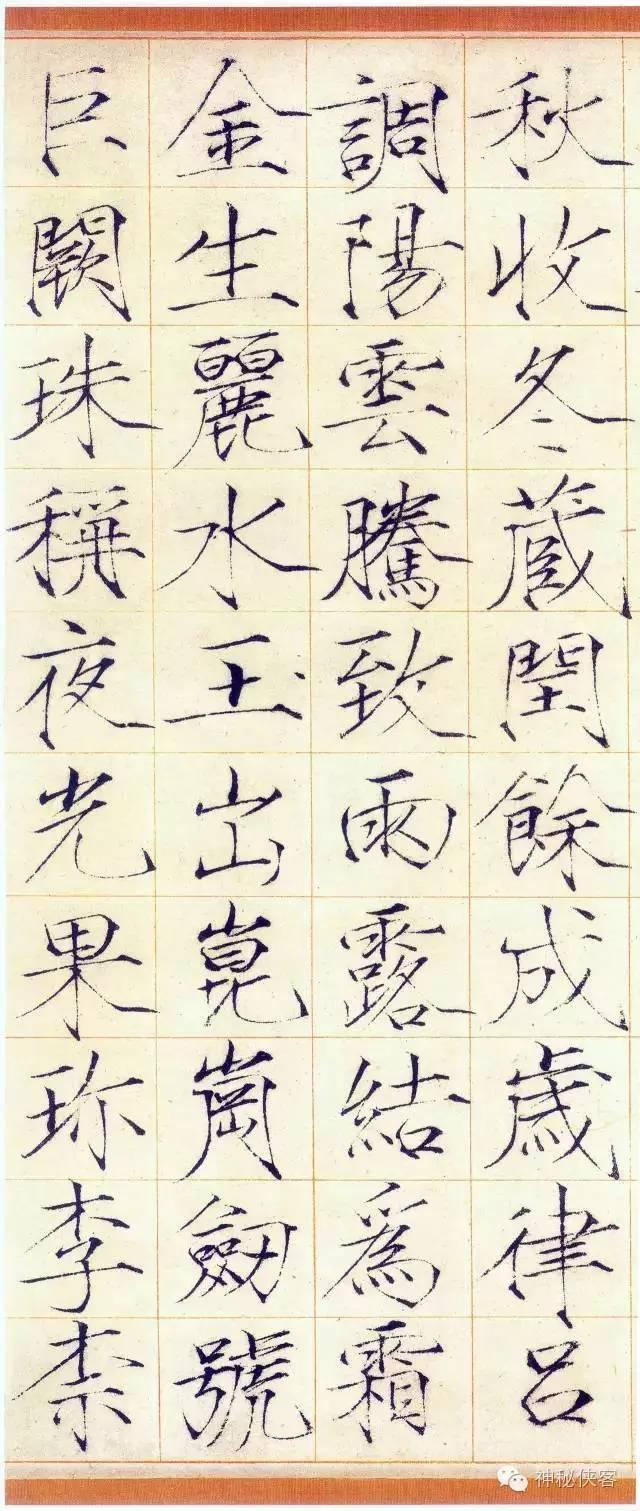 秋收冬蔵閏餘成歲律呂
調陽雲騰致雨露結爲霜
金生麗水玉出崑崗劒號
巨闕珠稱夜光果珎李柰
神秘侠客